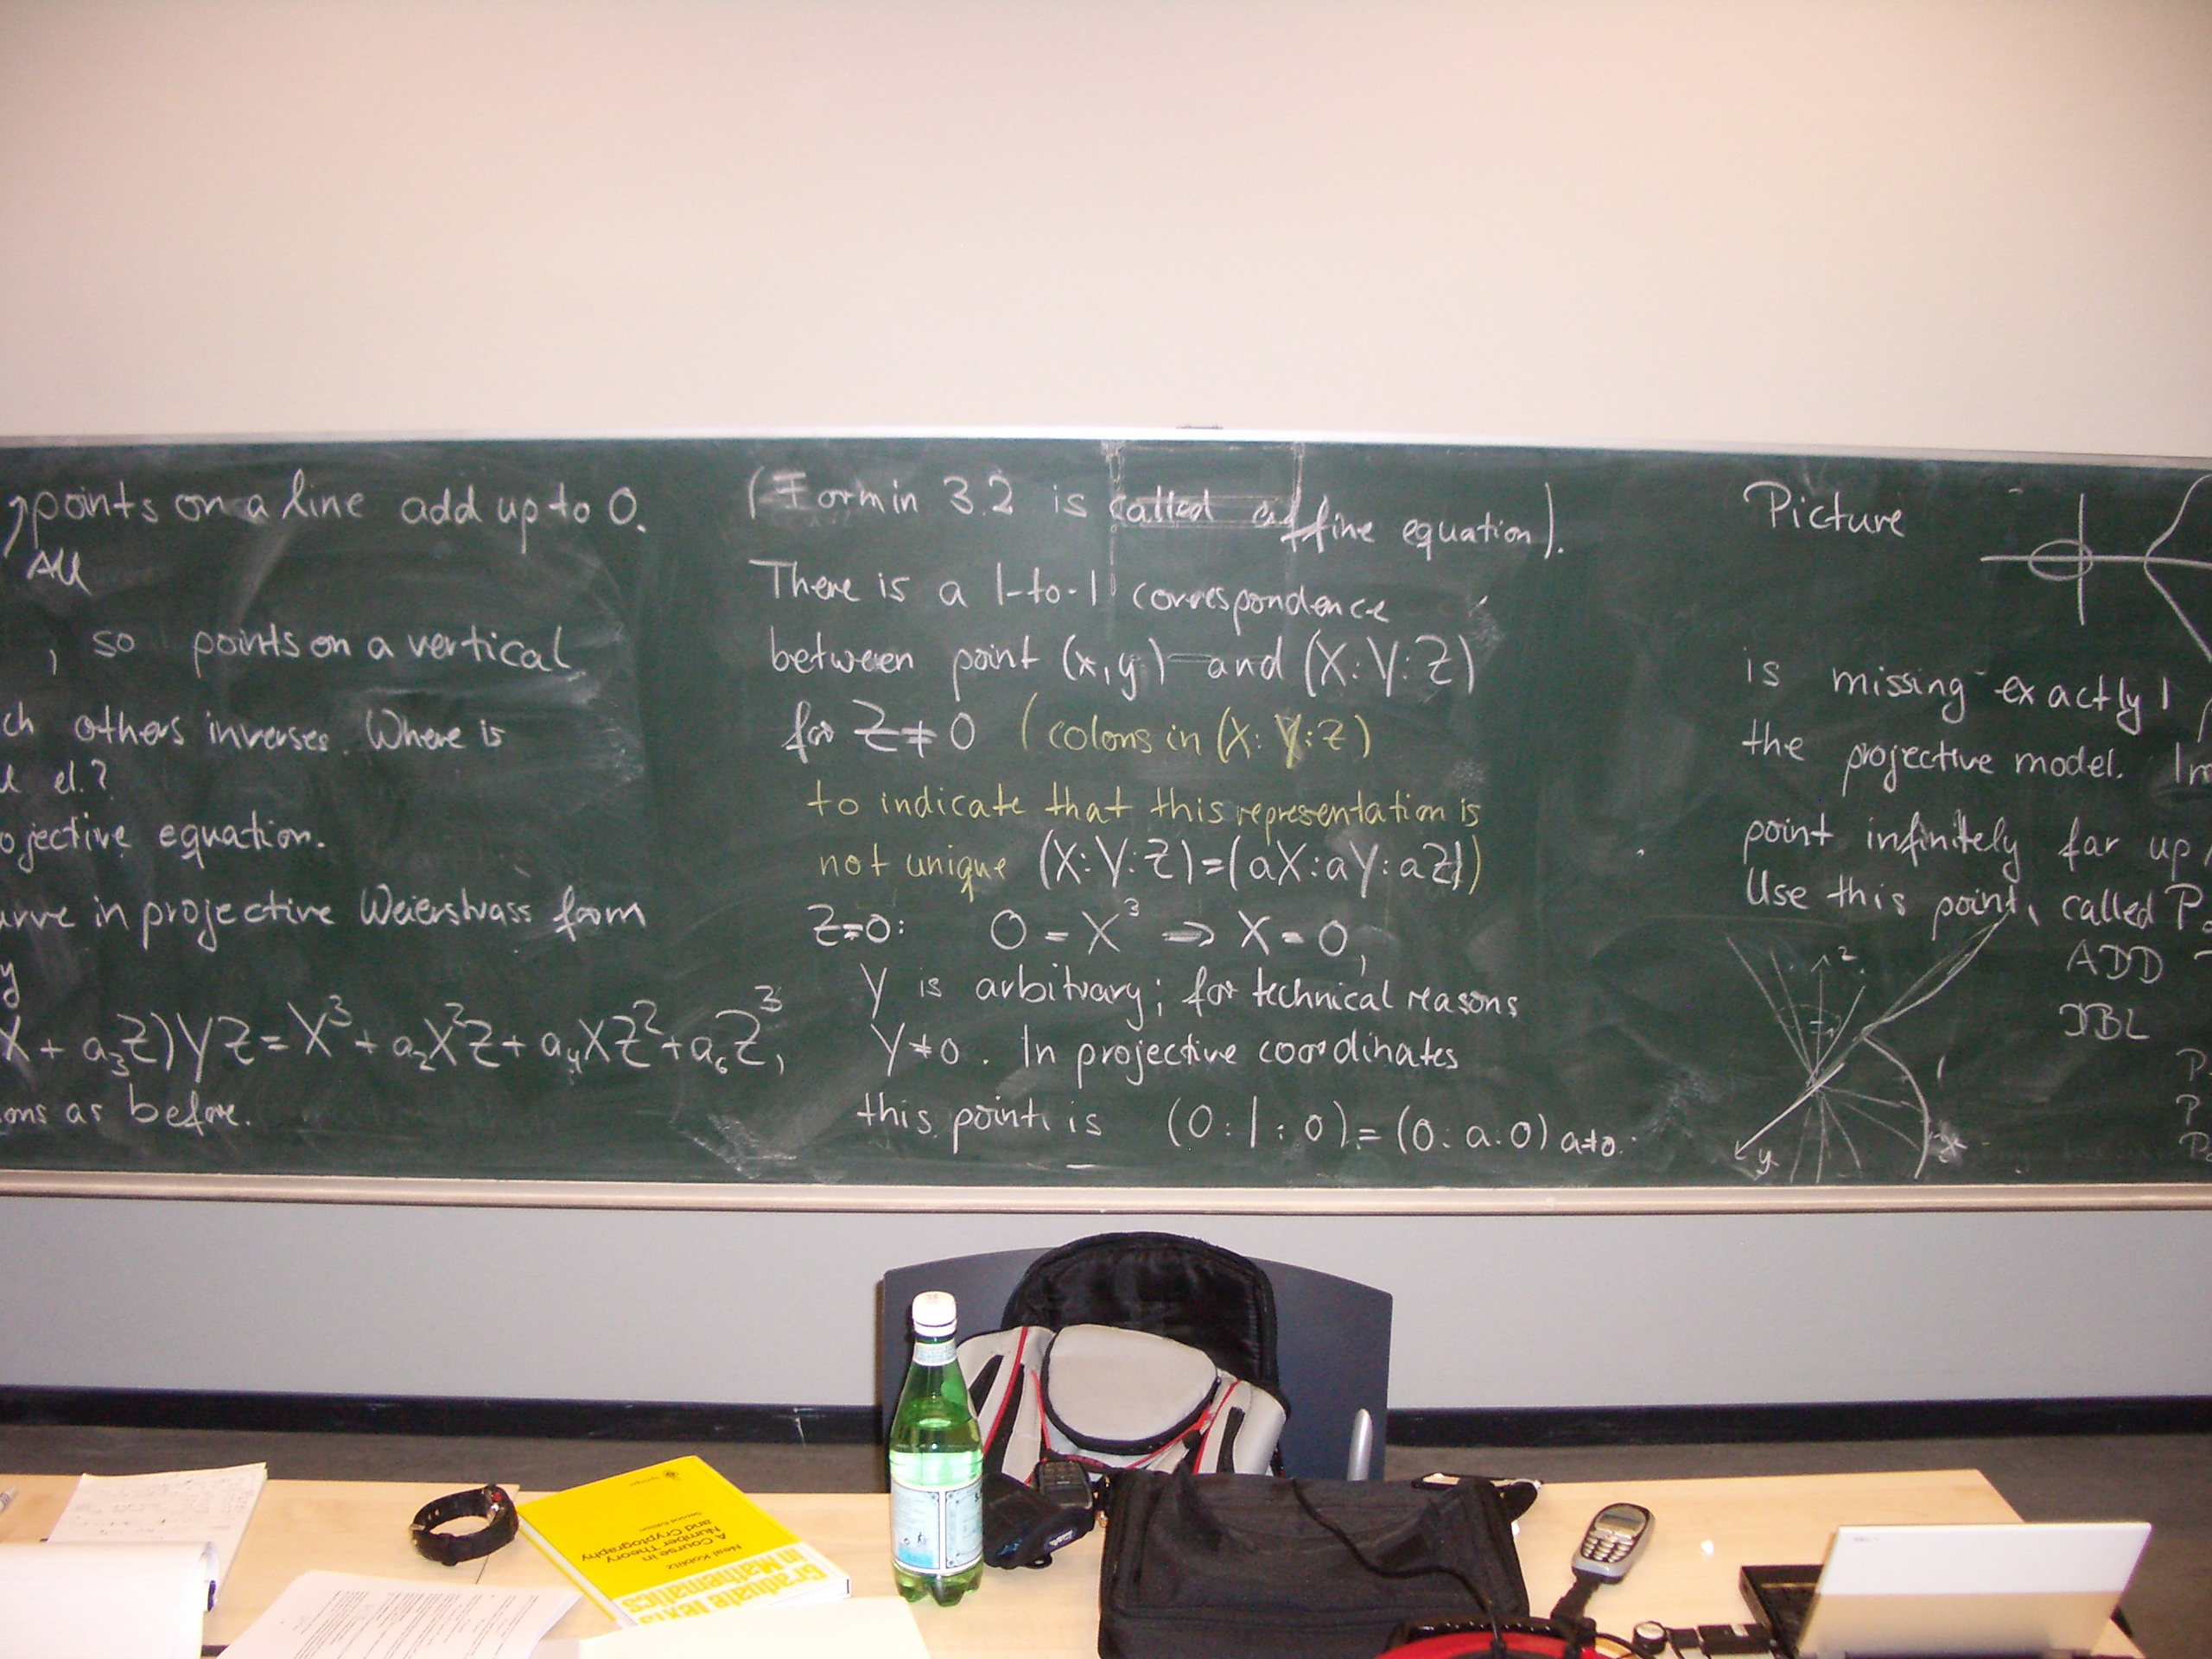 points on a line add up to 0.
All
, so points on a vertical
ch others inverses. Where is
el.?
ojective equation.
urve in projective Weierstrass form
y
X + a₃Z)YZ = X³ + a₂X²Z + a₄XZ² + a₆Z³,
ons as before.
(Form in 3.2 is called affine equation).
There is a 1-to-1 correspondence
between point (x,y) and (X:Y:Z)
for Z≠0 (colons in (X:Y:Z)
to indicate that this representation is
not unique (X:Y:Z)=(aX:aY:aZ))
Z=0: 0 = X³ => X=0,
Y is arbitrary; for technical reasons
Y≠0. In projective coordinates
this point is (0:1:0) = (0:a:0) a≠0.
Picture
is missing exactly 1
the projective model.
point infinitely far up
Use this point, called P
z
ADD
1
DBL
P
P
P
y
x
Springer
Second Edition
and Cryptography
Number Theory
A Course in
Neal Koblitz
in Mathematics
Graduate Texts